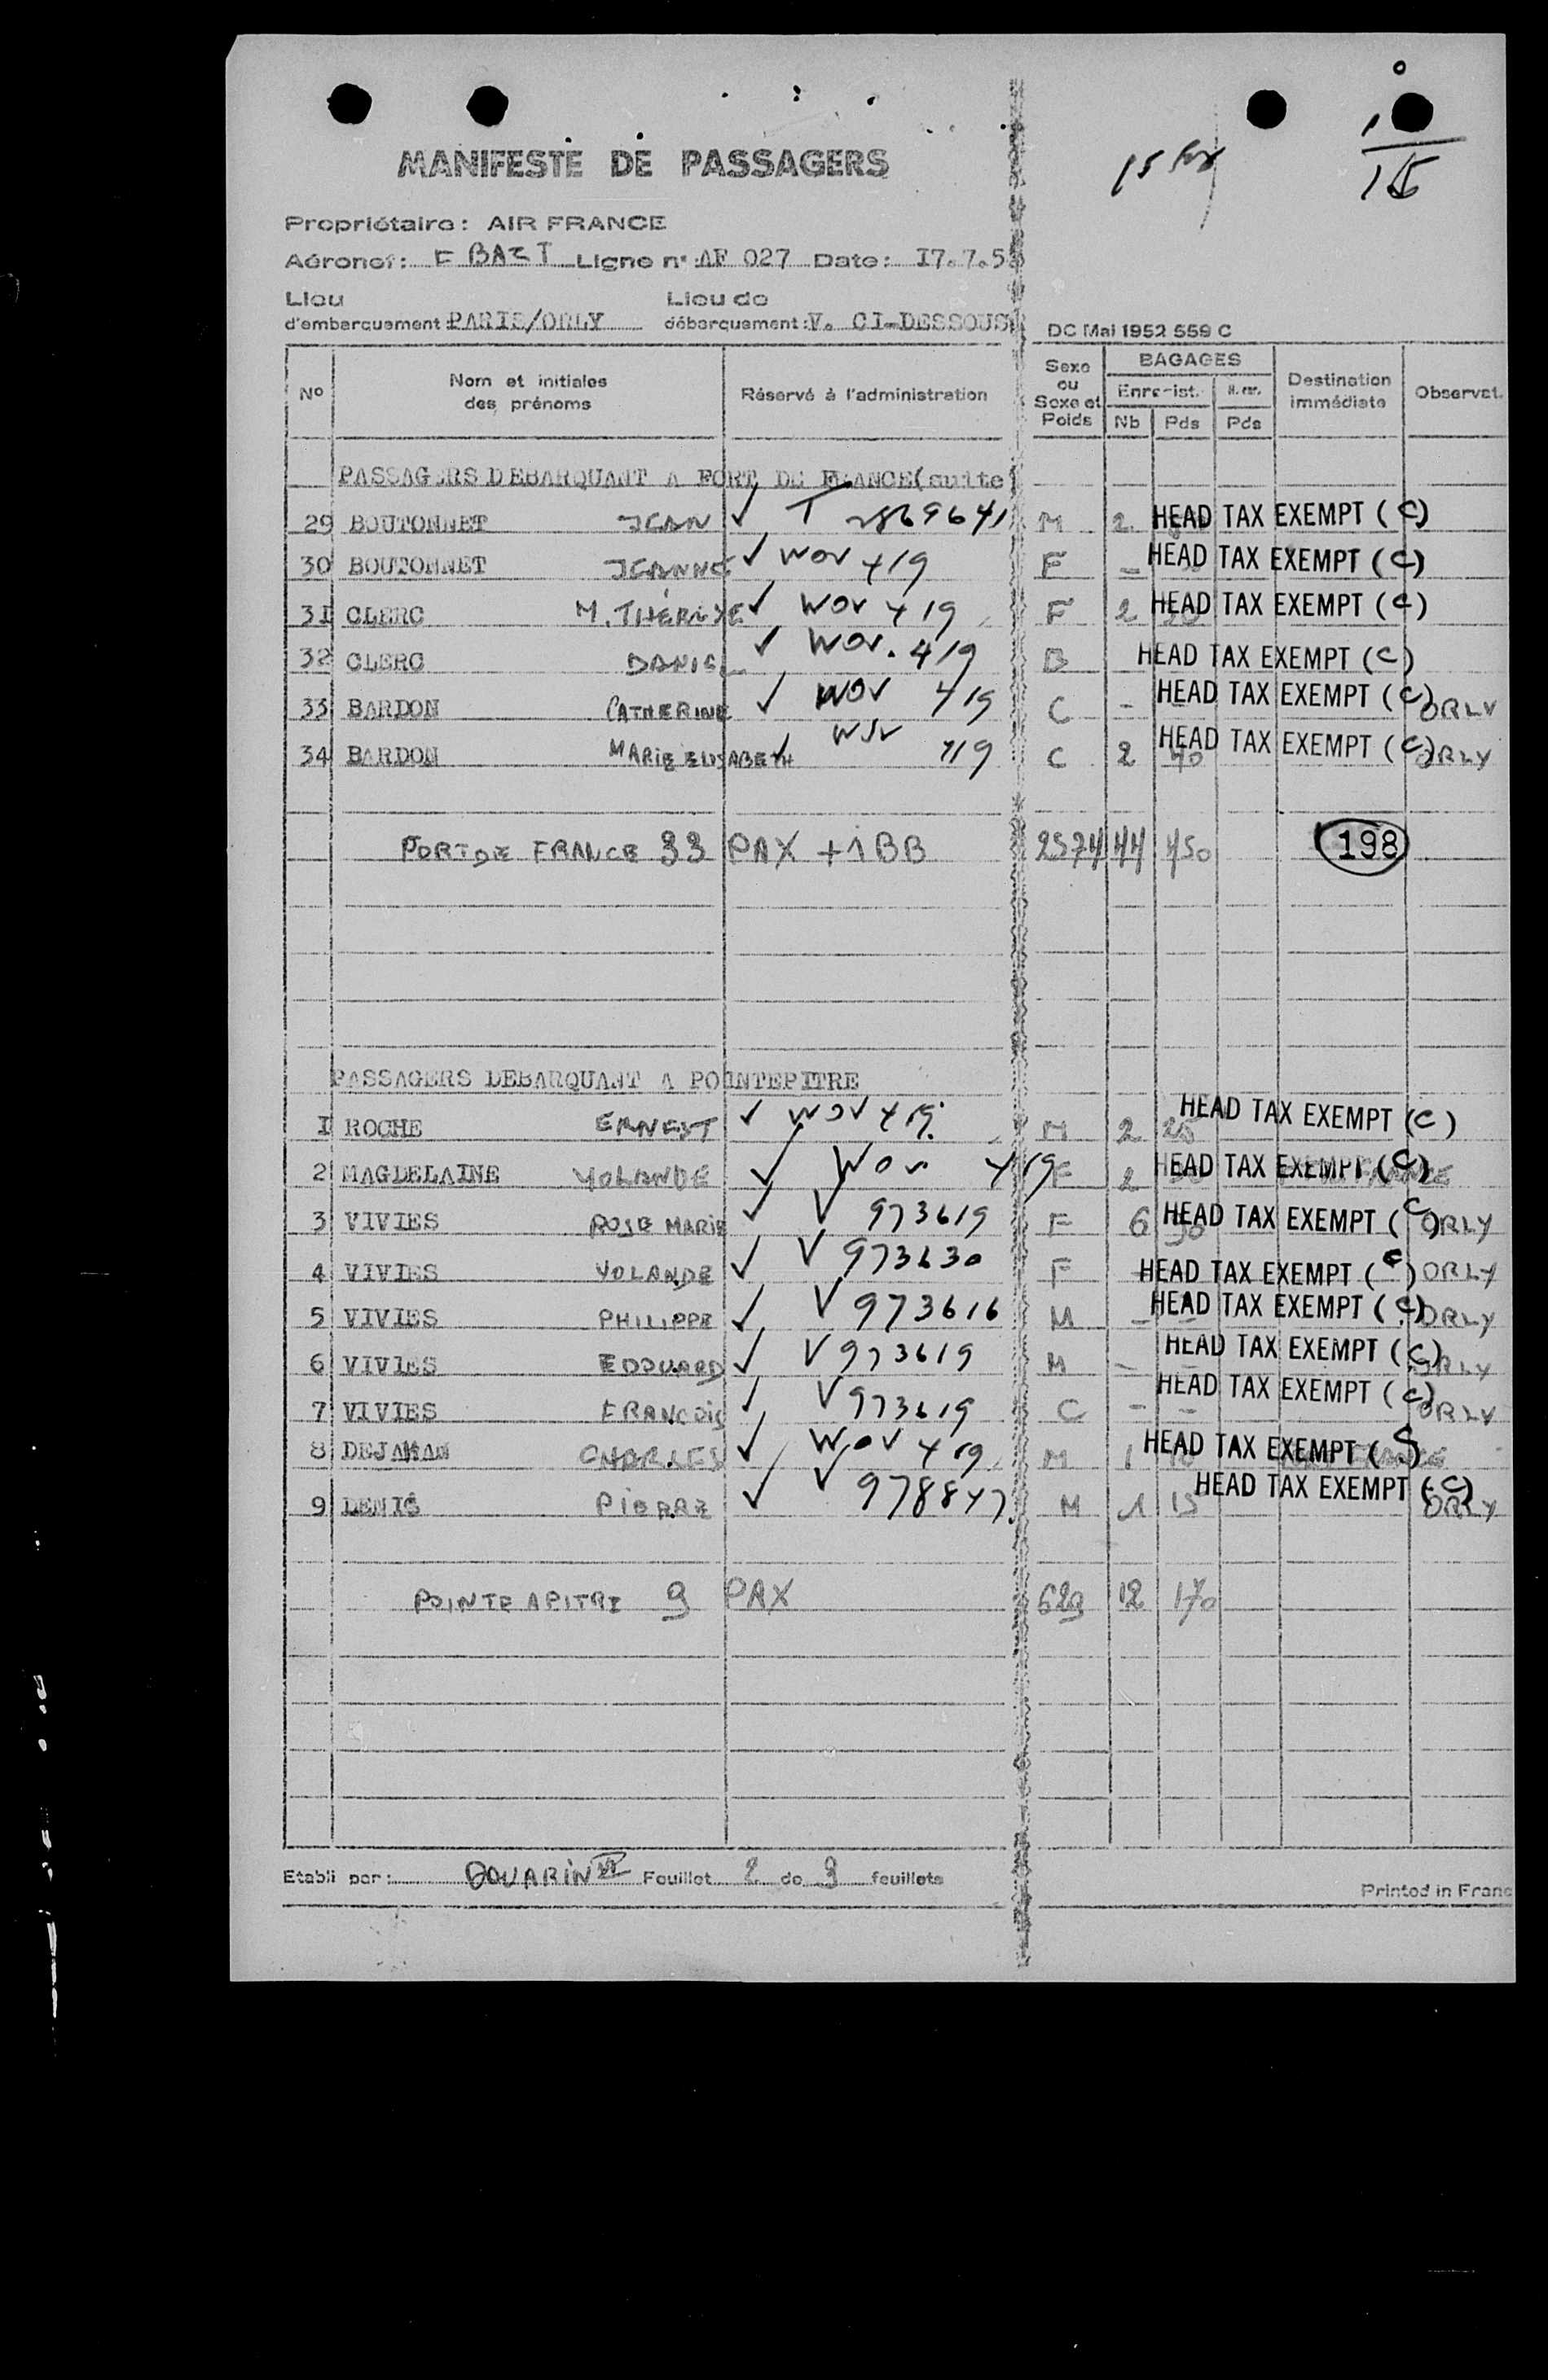 15
MANIFESTE DE PASSAGERS
Propriétaire: AIR FRANCE
Aéronef: F BAZT Ligne n° AF 027 Date: I7.7.5
Lieu d'embarquement PARIS/ORLY Lieu de débarquement: V. CI-DESSOUS
DC Mai 1952 559 C
N° Nom et initiales des prénoms Réservé à l'administration Sexe ou Sexe et Poids BAGAGES Enregist. Nb Pds Pds Destination immédiate Observat.
PASSAGERS DEBARQUANT A FORT DE FRANCE(suite)
29 BOUTONNET JEAN ✓ T 2869641 M 2 HEAD TAX EXEMPT (C)
30 BOUTONNET JEANNE ✓ WOV 419 F - HEAD TAX EXEMPT (C)
3I CLERC M. THÉRÈSE ✓ WOV 419 F 2 HEAD TAX EXEMPT (C)
32 CLERC DANIEL ✓ WOV. 419 B HEAD TAX EXEMPT (C)
33 BARDON CATHERINE ✓ WOV 419 C - HEAD TAX EXEMPT (C) ORLY
34 BARDON MARIE ELISABETH ✓ WOV 419 C 2 40 HEAD TAX EXEMPT (C) ORLY
FORT DE FRANCE 33 PAX + 1 BB 2574 44 450 198
PASSAGERS DEBARQUANT A POINTEPITRE
I ROCHE ERNEST ✓ WOV 419. M 2 25 HEAD TAX EXEMPT (C)
2 MAGDELAINE YOLANDE ✓ WOV 419 F 2 HEAD TAX EXEMPT (C)
3 VIVIES ROSE MARIE ✓ V 973619 F 6 90 HEAD TAX EXEMPT (C) ORLY
4 VIVIES YOLANDE ✓ V 973630 F HEAD TAX EXEMPT (C) ORLY
5 VIVIES PHILIPPE ✓ V 973616 M - HEAD TAX EXEMPT (C) ORLY
6 VIVIES EDOUARD ✓ V 973619 M - HEAD TAX EXEMPT (C) ORLY
7 VIVIES FRANCOIS ✓ V 973619 C - - HEAD TAX EXEMPT (C) ORLY
8 DEJAHAN CHARLES ✓ WOV 419 M 1 HEAD TAX EXEMPT (C)
9 DENIS PIERRE ✓ V 978847. M 1 15 HEAD TAX EXEMPT (C) ORLY
POINTE A PITRE 9 PAX 629 12 170
Etabli par: DOUARIN Feuillet 2 de 3 feuillets
Printed in Franc